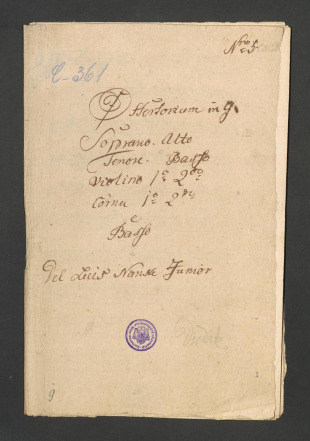 Nro 5
C-361
Offertorium in g.
Soprano. Alto
Tenore. Basso
Violino 1o 2do
Cornu 1o 2do
e
Basso
Del Luis Nanke Junior
9